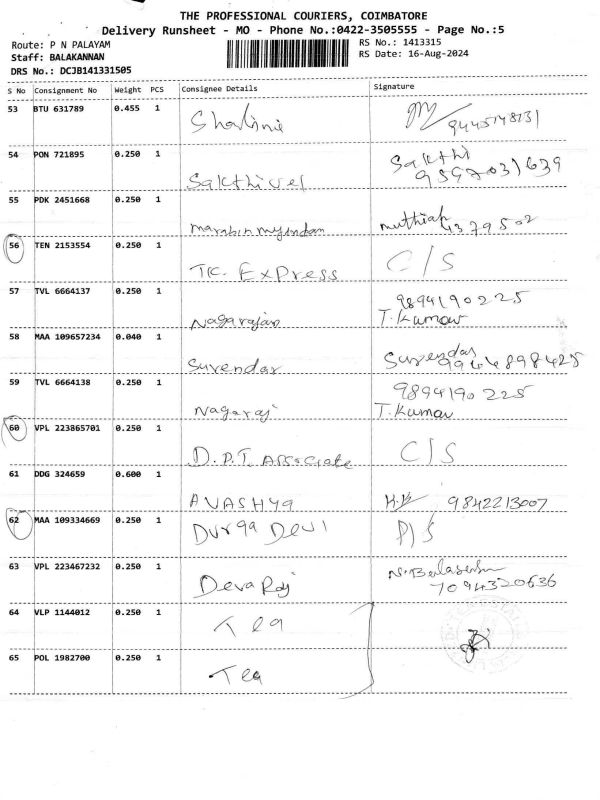 THE PROFESSIONAL COURIERS, COIMBATORE
Delivery Runsheet - MO - Phone No.:0422-3505555 - Page No.:5
Route: P N PALAYAM
RS No.: 1413315
Staff: BALAKANNAN
RS Date: 16-Aug-2024
DRS No.: DCJB141331505
S No Consignment No Weight PCS Consignee Details Signature
53 BTU 631789 0.455 1 Shalinie 9445748731
54 PON 721895 0.250 1 Sakthivel Sakthi
9597031639
55 PDK 2451668 0.250 1 muthiah 4379502
56 TEN 2153554 0.250 1 T.C. Express C/S
57 TVL 6664137 0.250 1 Nagarajan 9894190225
T. Kumar
58 MAA 109657234 0.040 1 Surendar Surendar
9944898425
59 TVL 6664138 0.250 1 Nagaraj 9894190225
T. Kumar
60 VPL 223865701 0.250 1 D.P.T. Associate C/S
61 DDG 324659 0.600 1 AVASHYA 9842213007
62 MAA 109334669 0.250 1 Durga Devi P/S
63 VPL 223467232 0.250 1 Devaraj
7094320636
64 VLP 1144012 0.250 1 Tea
65 POL 1982700 0.250 1 Tea